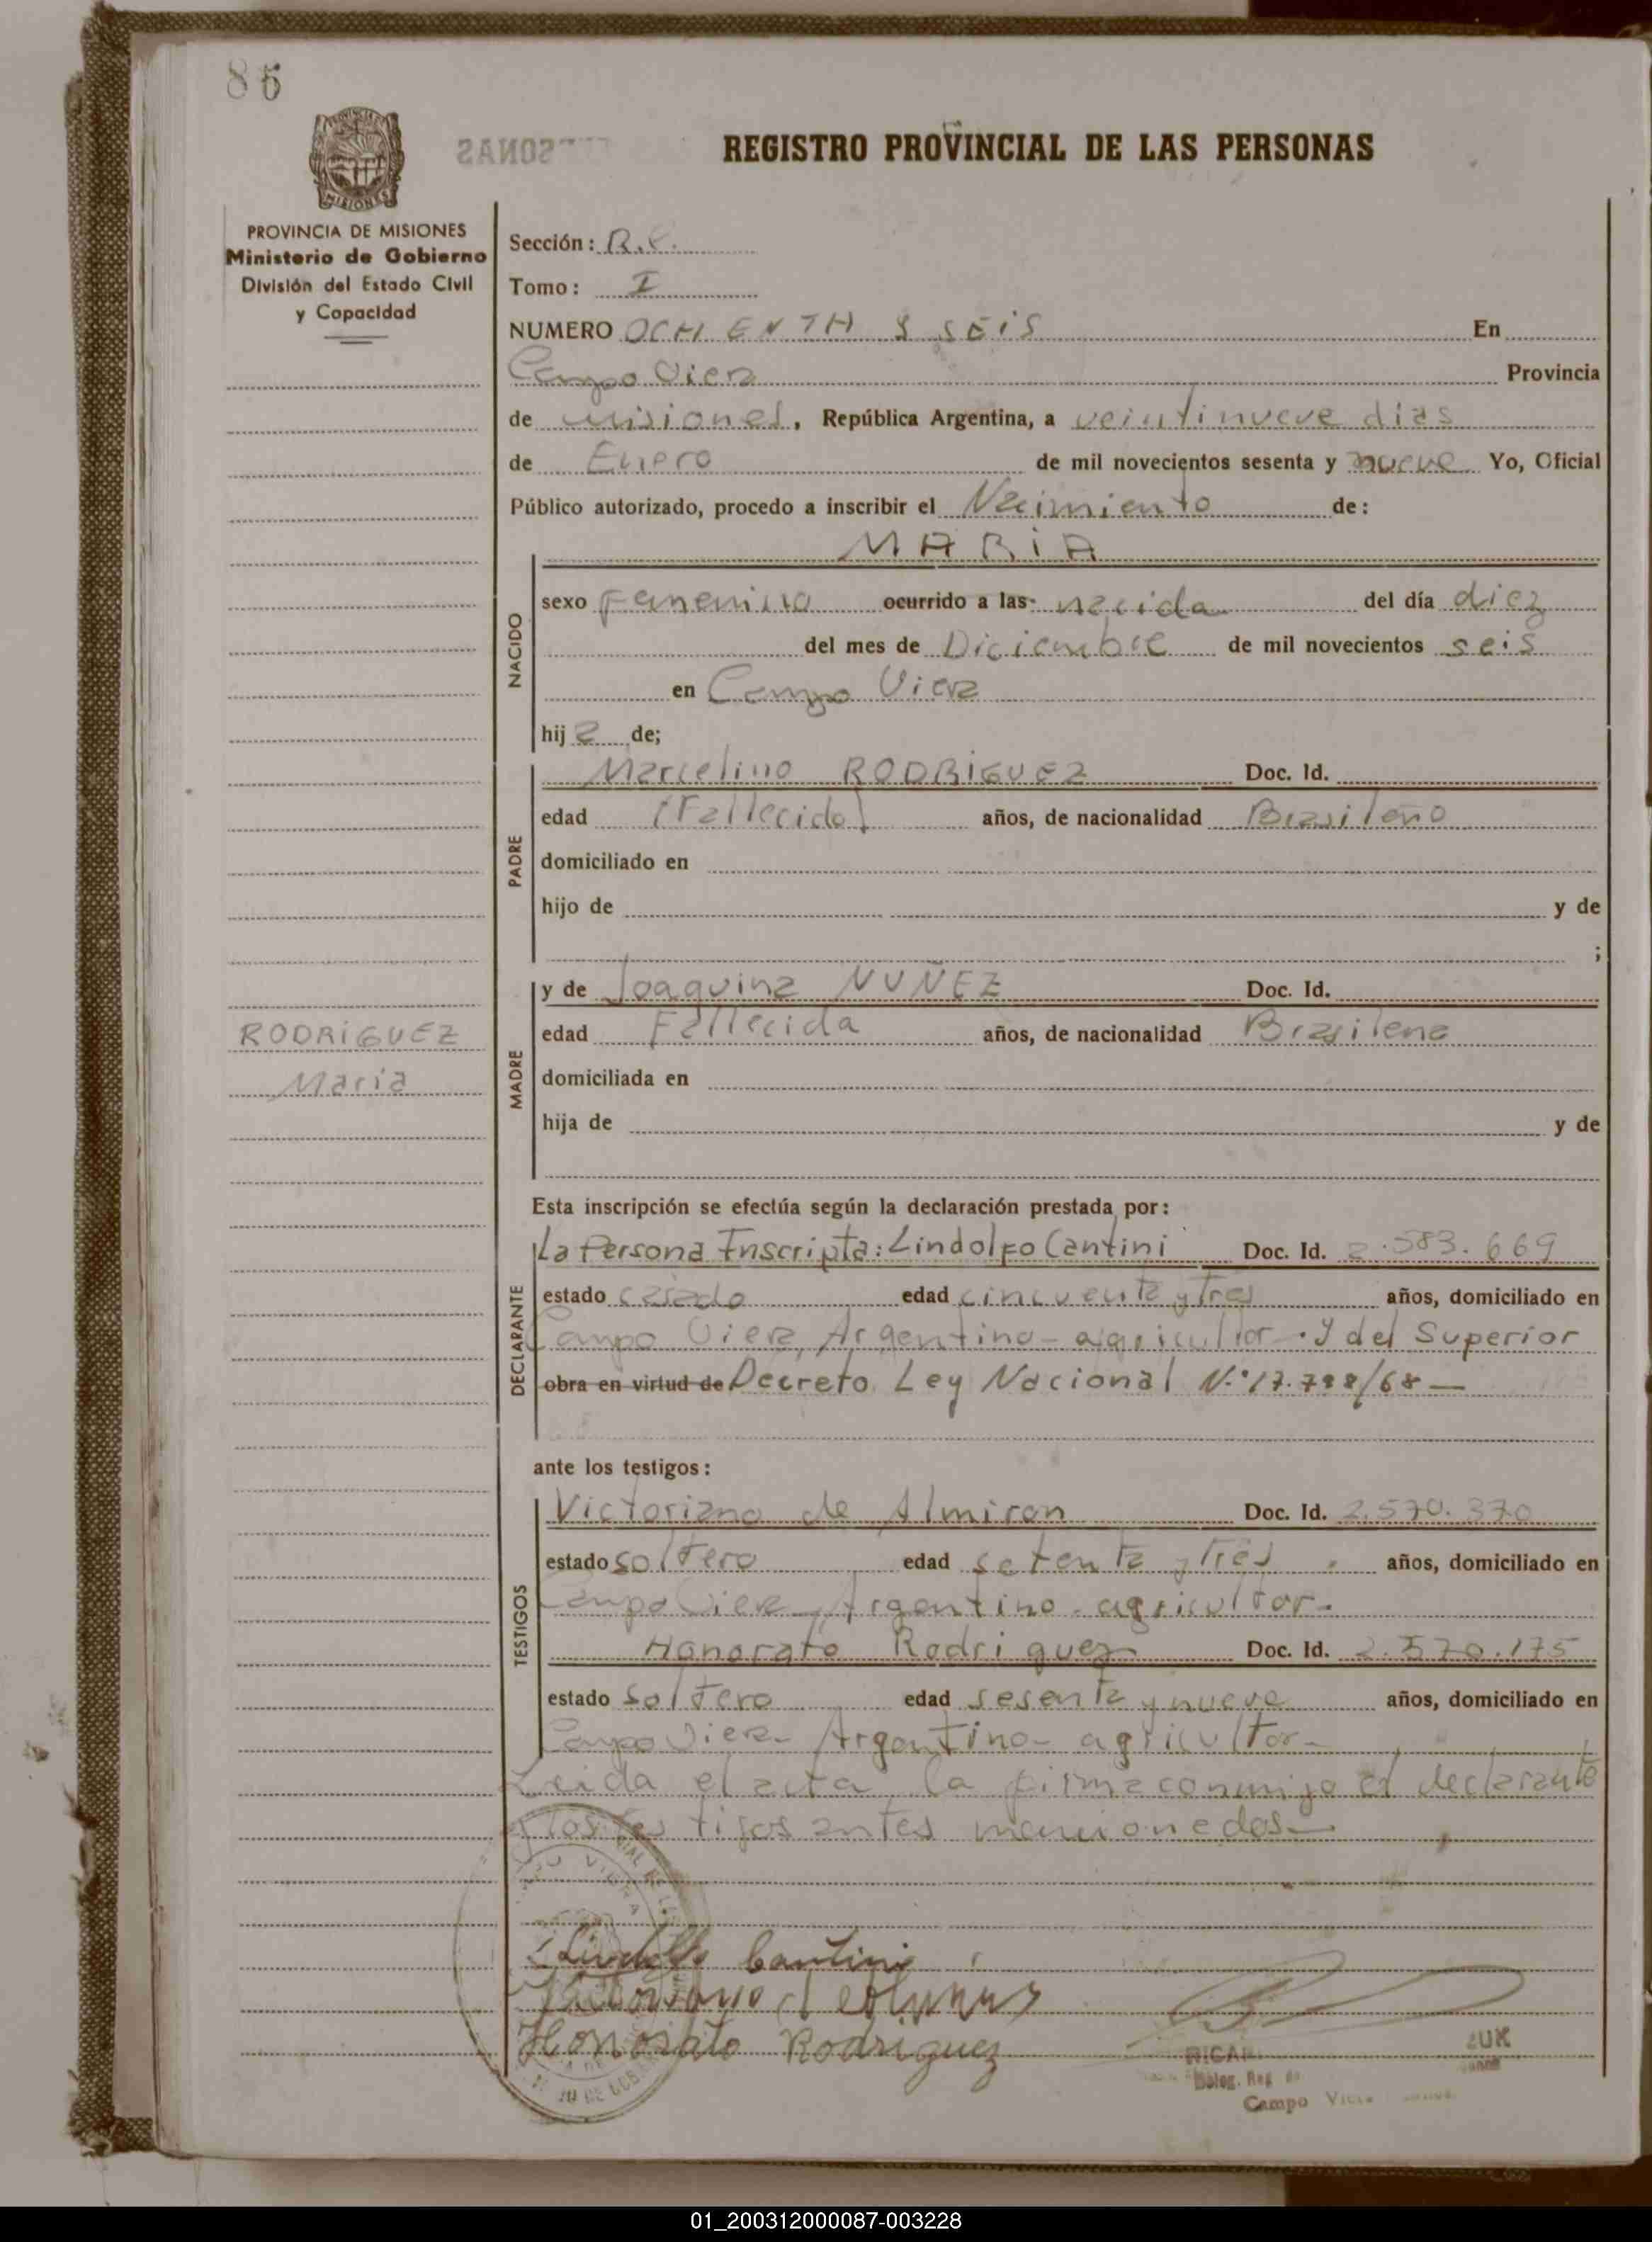 86
REGISTRO PROVINCIAL DE LAS PERSONAS
PROVINCIA DE MISIONES
MISIONES
PROVINCIA DE MISIONES
Ministerio de Gobierno
División del Estado Civil
y Capacidad
Sección: R.
Tomo: I
NUMERO OCHENTA y SEIS En
Campo Viera Provincia
de misiones, República Argentina, a veintinueve dias
de Enero de mil novecientos sesenta y nueve Yo, Oficial
Público autorizado, procedo a inscribir el Nacimiento de:
MARIA
NACIDO
sexo Femenino ocurrido a las- nacida del día diez
del mes de Diciembre de mil novecientos seis
en Campo Viera
hij a de;
PADRE
Marcelino RODRIGUEZ Doc. Id.
edad (Fallecido) años, de nacionalidad Brasileño
domiciliado en
hijo de y de
;
MADRE
y de Joaquina NUÑEZ Doc. Id.
edad Fallecida años, de nacionalidad Brasilena
domiciliada en
hija de y de
RODRIGUEZ
Maria
Esta inscripción se efectúa según la declaración prestada por:
DECLARANTE
La Persona Inscripta: Lindolfo Cantini Doc. Id. 2.583.669
estado casado edad cincuenta y tres años, domiciliado en
Campo Viera, Argentino- agricultor.y del Superior
obra en virtud de Decreto Ley Nacional N.°17.798/68—
ante los testigos:
TESTIGOS
Victoriano de Almiron Doc. Id. 2.570.370
estado soltero edad setenta y tres. años, domiciliado en
Campo Viera, Argentino- agricultor-
Honorato Rodriguez Doc. Id. 2.570.175
estado soltero edad sesenta y nueve años, domiciliado en
Campo Viera- Argentino- agricultor-
Leida el acta, la firma conmigo el declarante
y los testigos antes mencionados—
Lindolfo Cantini
Honorato Rodriguez
RICAR
Deleg. Reg.
Campo Viera
01_200312000087-003228